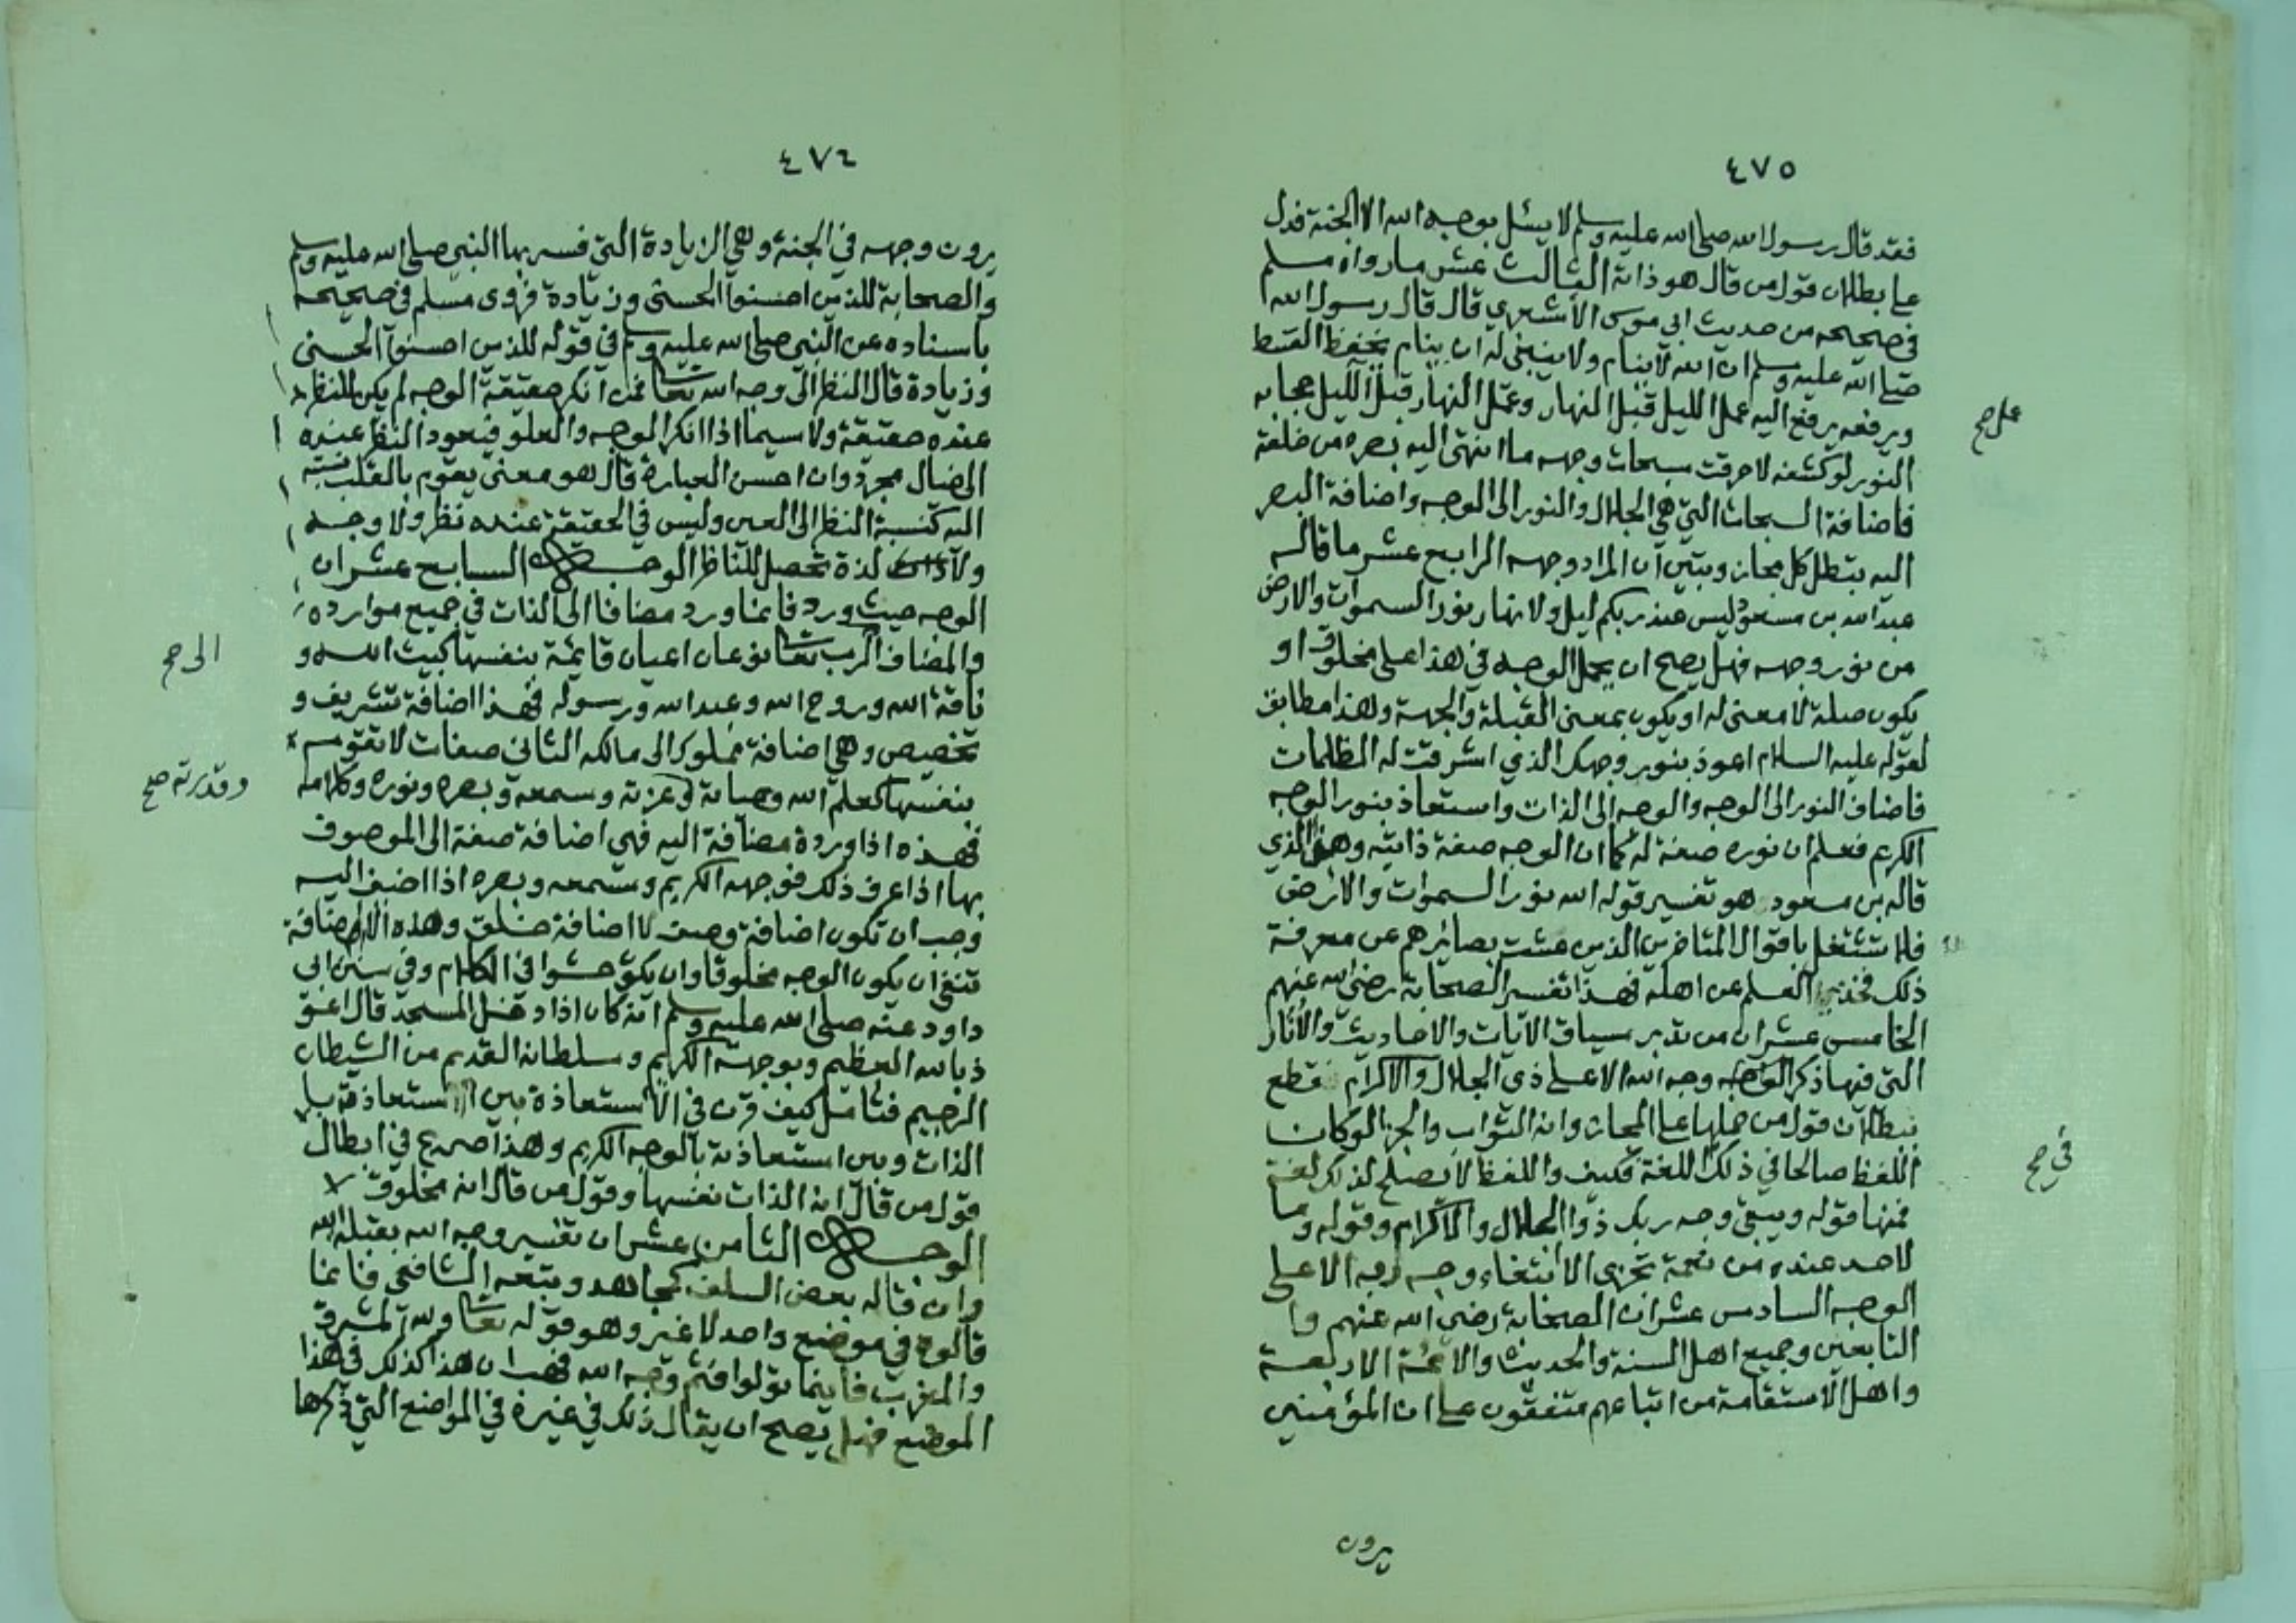 ٤٧٥
فقد قال رسول الله صلى الله عليه وسلم لا يسئل بوجه الله الا الجنة فدل
على بطلان قول من قال هو ذاته الثالث عشر ما رواه مسلم
في صحيحه من حديث ابي موسى الأشعري قال قال رسول الله
صلى الله عليه وسلم ان الله لا ينام ولا ينبغي له ان ينام يخفض القسط
ويرفعه يرفع اليه عمل الليل قبل النهار وعمل النهار قبل الليل حجابه
عمل صح
النور لو كشفه لاحرقت سبحات وجهه ما انتهى اليه بصره من خلقه
فاضافة السبحات التي هي الجلال والنور الى الوجه واضافة البصر
اليه يبطل كل مجاز ويبين ان المراد وجهه الرابع عشر ما قاله
عبد الله بن مسعود ليس عند ربكم ليل ولا نهار نور السموات والارض
من نور وجهه فهل يصح ان يحمل الوجه في هذا على مخلوق او
يكون صلة لا معنى له او يكون بمعنى القبلة والجهة وهذا مطابق
لقوله عليه السلام اعوذ بنور وجهك الذي اشرقت له الظلمات
فاضاف النور الى الوجه والوجه الى الذات واستعاذ بنور الوجه
الكريم فعلم ان نوره صفة له كما ان الوجه صفة ذاتيه وهذا الذي
قاله بن مسعود هو تفسير قوله الله نور السموات والارض
فلا تشتغل باقوال المتاخرين الذين عشت بصائرهم عن معرفة
ذلك فخذ العلم عن اهله فهذا تفسير الصحابة رضي الله عنهم
الخامس عشر ان من تدبر سياق الآيات والاحاديث والآثار
التي فيها ذكر الوجه وجه الله الاعلى ذي الجلال والاكرام قطع
ببطلان قول من حملها على المجاز وانه الثواب والجزا لو كان
اللفظ صالحا في ذلك اللغة فكيف واللفظ لا يصلح لذلك لغة
في صح
فمنها قوله ويبقى وجه ربك ذو الجلال والاكرام وقوله وما
لاحد عنده من نعمة تجزى الا ابتغاء وجه ربه الاعلى
الوجه السادس عشر ان الصحابة رضي الله عنهم وا
التابعين وجميع اهل السنة والحديث والائمة الاربعة
واهل الاستقامة من اتباعهم متفقون على ان المؤمنين
يرون
٤٧٦
يرون وجهه في الجنة وهي الزيادة التي فسر بها النبي صلى الله عليه وسلم
والصحابة للذين احسنوا الحسنى وزيادة فروى مسلم في صحيحه
باسناده عن النبي صلى الله عليه وسلم في قوله للذين احسنوا الحسنى
وزيادة قال النظر الى وجه الله تعالى فمن انكر حقيقة الوجه لم يكن للنظر
عنده حقيقة ولا سيما اذا انكر الوجه والعلو فيعود النظر عنده
الى خيال مجرد وان احسن العبارة قال هو معنى يقوم بالقلب نسبته
اليه كنسبة النظر الى العين وليس في الحقيقة عنده نظر ولا وجه
ولا لذة تحصل للناظر الوجه السابع عشر ان
الوجه حيث ورد فانما ورد مضافا الى الذات في جميع موارده
والمضاف الرب تعالى نوعان اعيان قائمة بنفسها كبيت الله و
الى صح
ناقة الله وروح الله وعبد الله ورسوله فهذا اضافة تشريف و
تخصيص وهي اضافة مملوك الى مالكه الثاني صفات لا تقوم
بنفسها كعلم الله وحياته وعزته وسمعه وبصره ونوره وكلامه
وقدرته صح
فهذه اذا وردة مضافة اليه فهي اضافة صفة الى الموصوف
بها اذا عرف ذلك فوجهه الكريم وسمعه وبصره اذا اضيف اليه
وجب ان تكون اضافة وصف لا اضافة خلق وهذه الاضافة
تنفي ان يكون الوجه مخلوقا وان يكون حشوا في الكلام وفي سنن ابي
داود عنه صلى الله عليه وسلم انه كان اذا دخل المسجد قال اعو
ذ بالله العظيم وبوجهه الكريم وسلطانه القديم من الشيطان
الرجيم فتامل كيف قرن في الاستعاذة بين استعاذته با
الذات وبين استعاذته بالوجه الكريم وهذا صريح في ابطال
قول من قال انه الذات نفسها وقول من قال انه مخلوق
الوجه الثامن عشر ان تفسير وجه الله بقبلة الله
وان قاله بعض السلف كمجاهد وتبعه الشافعي فانما
قالوه في موضع واحد لا غير وهو قوله تعالى ولله المشرق
والمغرب فاينما تولوا فثم وجه الله فهب ان هذا كذلك في هذا
الموضع فهل يصح ان يقال ذلك في غيره في المواضع التي ذكرها